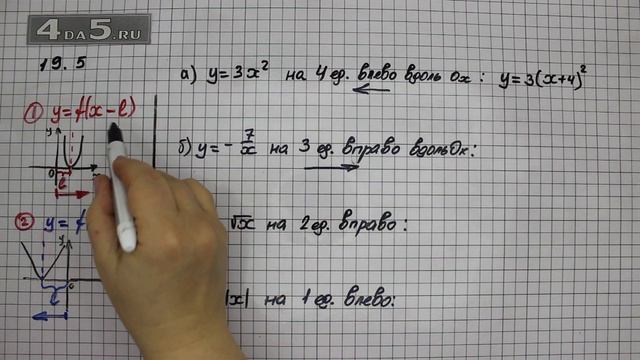 4DA5.RU
19.5
① y=f(x-l)
y
0
l
② y=f
y
0
l
а) y=3x² на 4 ед. влево вдоль Ox: y=3(x+4)²
б) y=-7/x на 3 ед. вправо вдоль Ox:
√x на 2 ед. вправо:
|x| на 1 ед. влево: